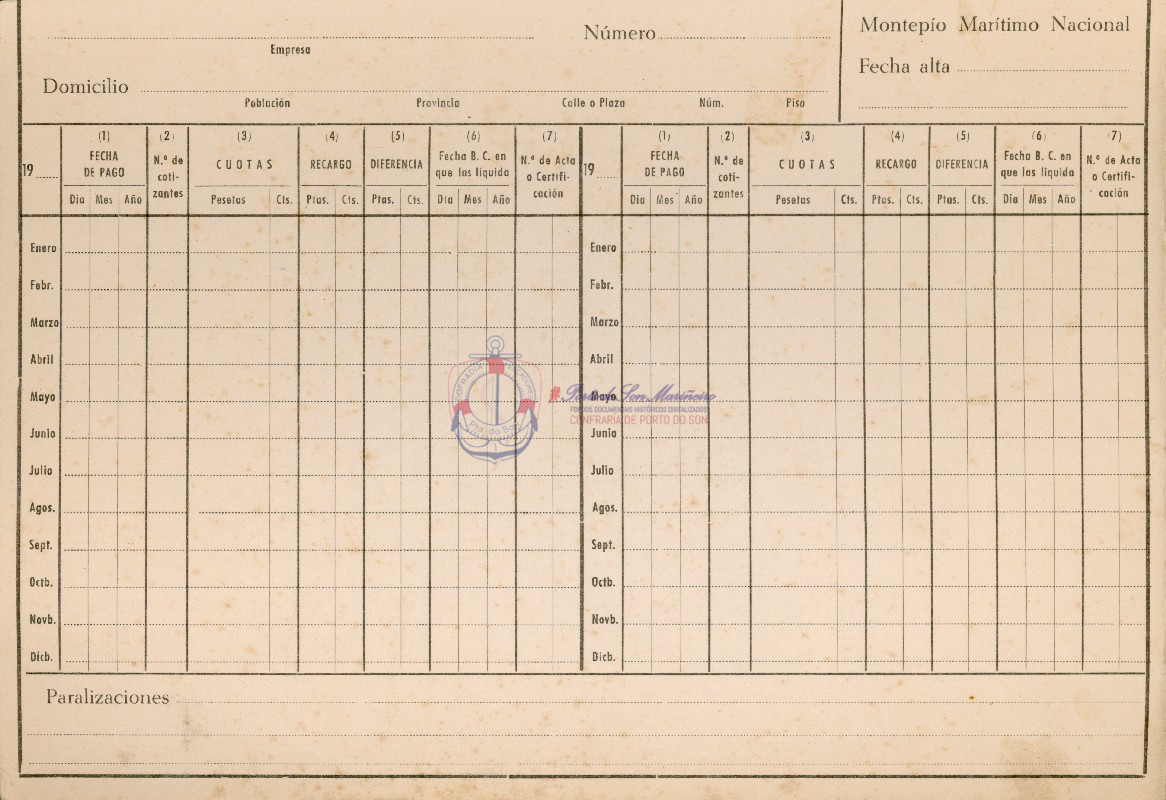 Empresa
Número
Montepío Marítimo Nacional
Fecha alta
Domicilio
Población Provincia Calle o Plaza Núm. Piso
19
(1) (2) (3) (4) (5) (6) (7)
FECHA DE PAGO N.º de cotizantes CUOTAS RECARGO DIFERENCIA Fecha B. C. en que las líquida N.º de Acta o Certificación
Dia Mes Año Pesetas Cts. Ptas. Cts. Ptas. Cts. Día Mes Año
19
(1) (2) (3) (4) (5) (6) (7)
FECHA DE PAGO N.º de cotizantes CUOTAS RECARGO DIFERENCIA Fecha B. C. en que las líquida N.º de Acta o Certificación
Dia Mes Año Pesetas Cts. Ptas. Cts. Ptas. Cts. Dia Mes Año
Enero Enero
Febr. Febr.
Marzo Marzo
Abril Abril
Mayo Mayo
Junio Junio
Julio Julio
Agos. Agos.
Sept. Sept.
Octb. Octb.
Novb. Novb.
Dicb. Dicb.
Pto. do Son
#Porto do Son Mariñeiro
FONDOS DOCUMENTAIS HISTÓRICOS DIGITALIZADOS
CONFRARÍA DE PORTO DO SON
Paralizaciones